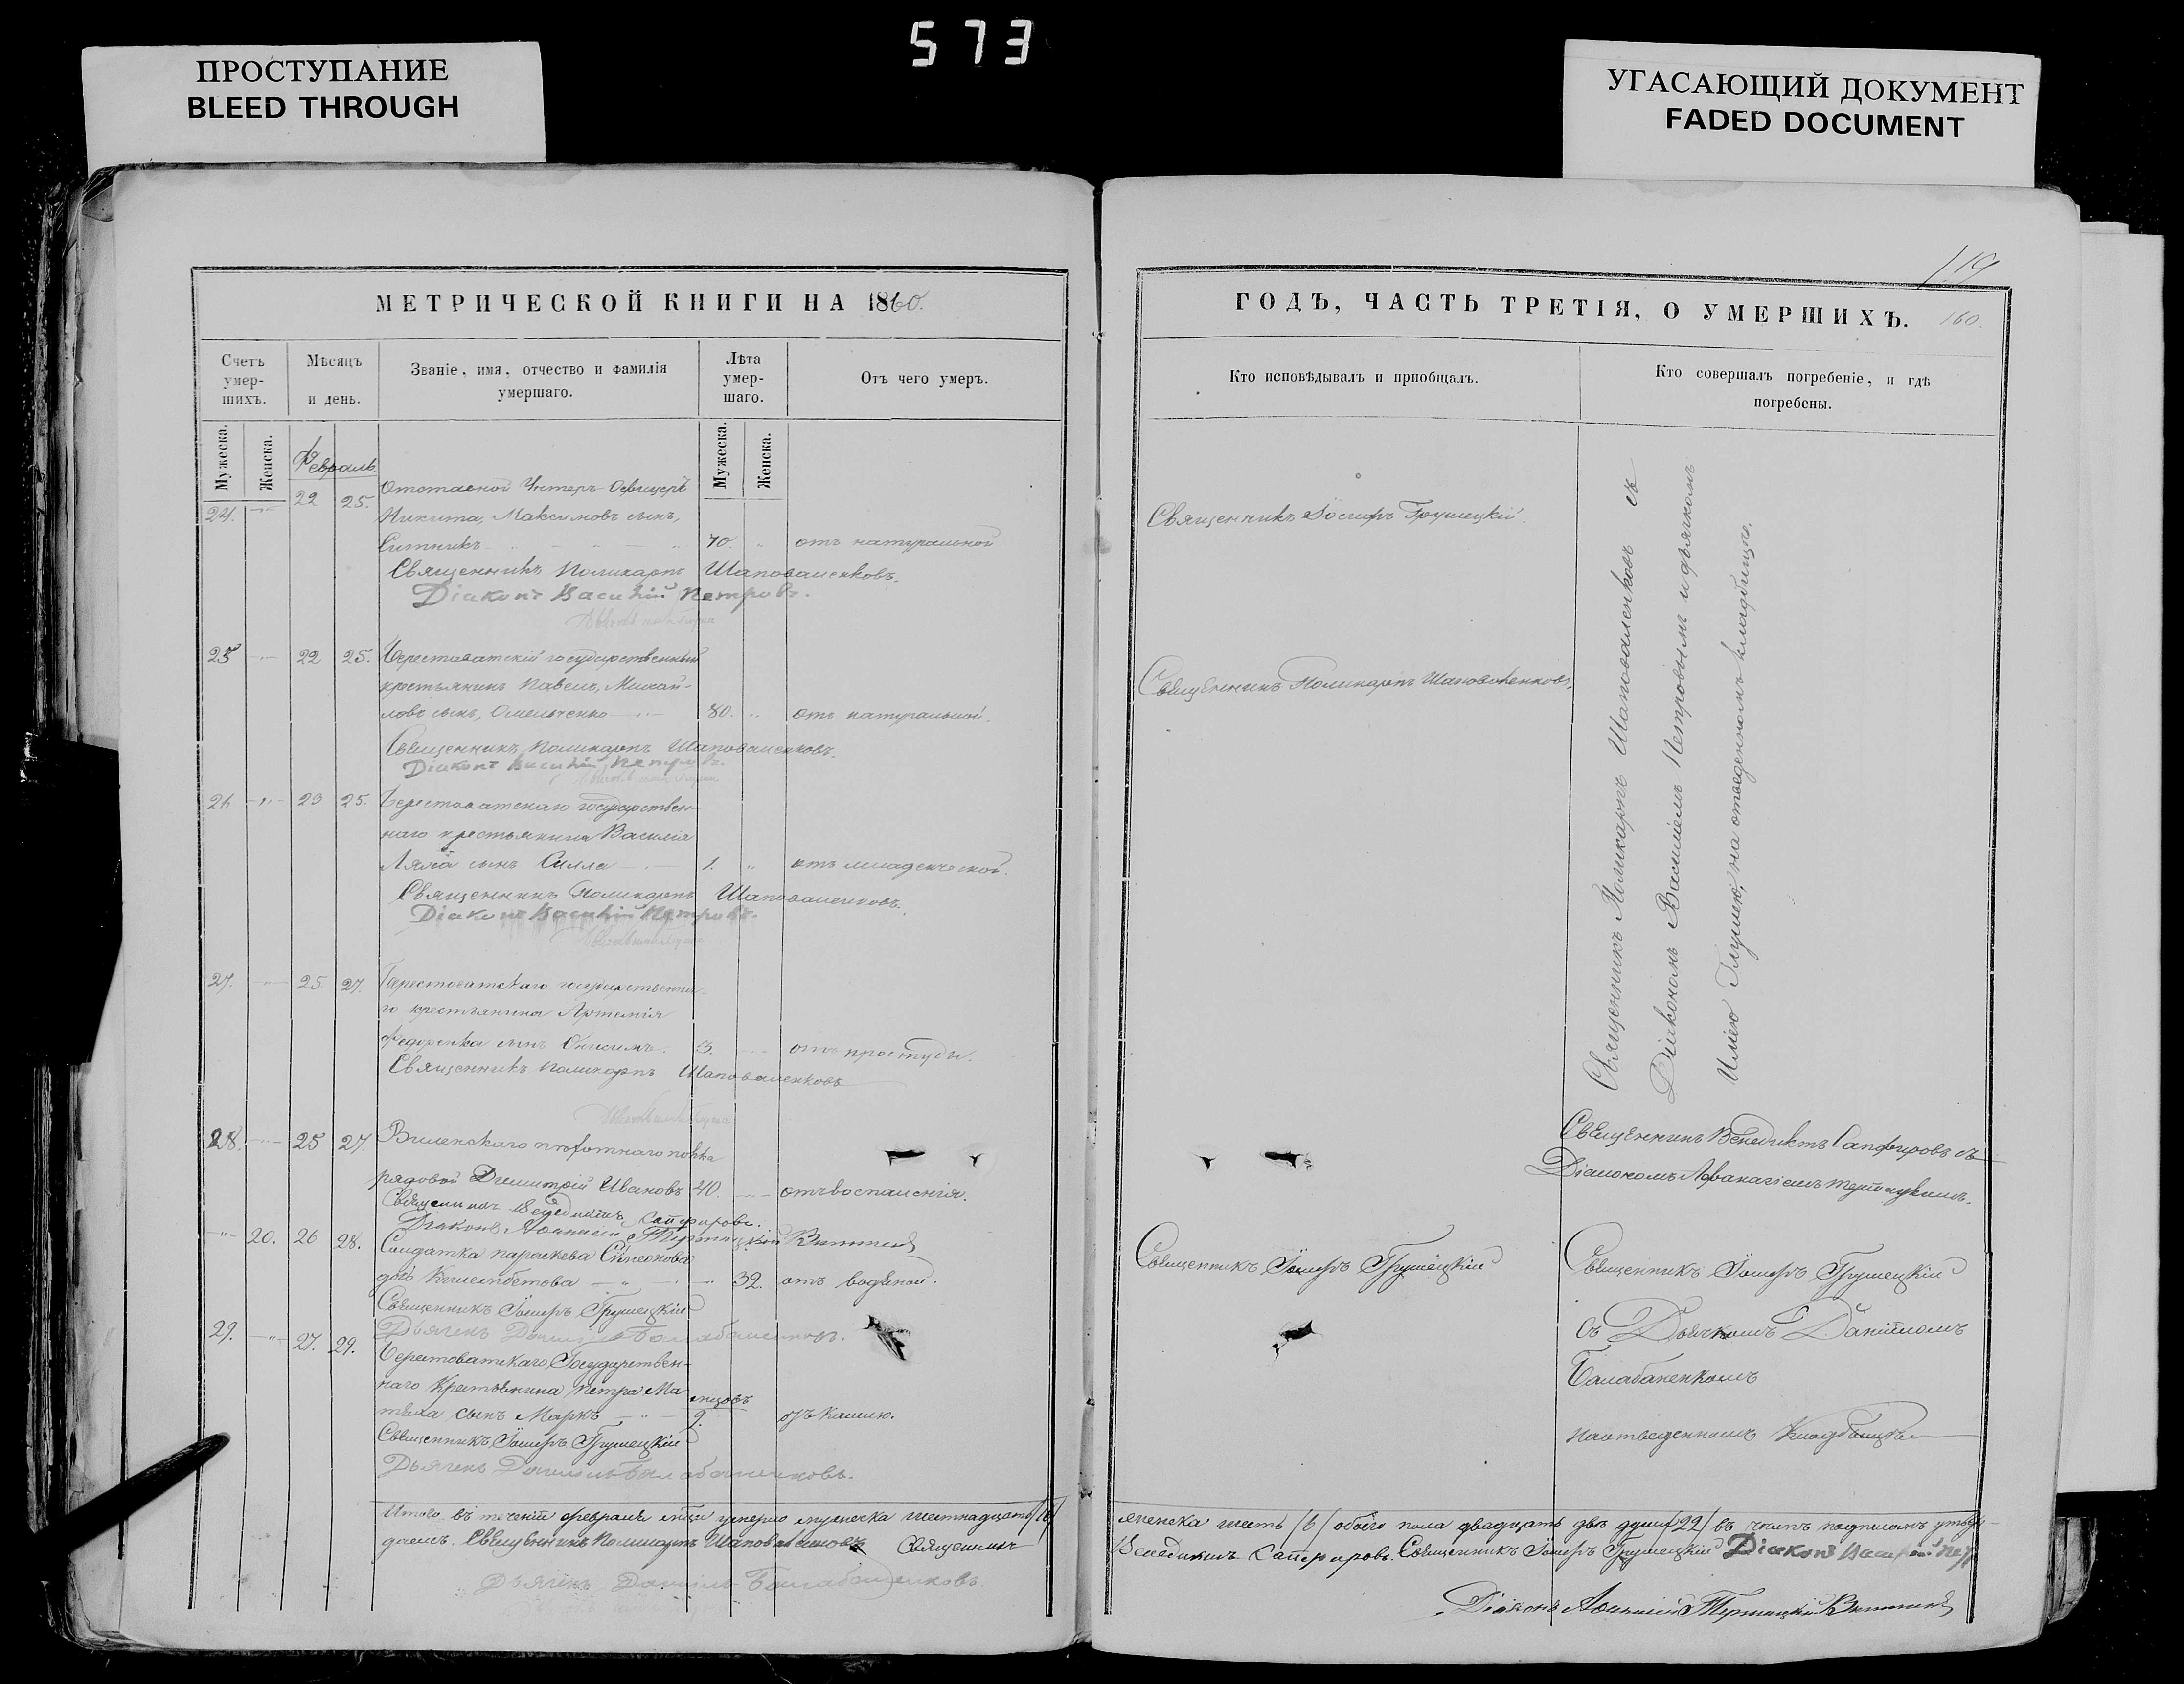 573
ПРОСТУПАНИЕ
BLEED THROUGH
УГАСАЮЩИЙ ДОКУМЕНТ
FADED DOCUMENT
МЕТРИЧЕСКОЙ КНИГИ НА 1860.
Счетъ умер-шихъ.
Мѣсяцъ и день.
Званіе, имя, отчество и фамилія умершаго.
Лѣта умер-шаго.
Отъ чего умеръ.
Мужеска.
Женска.
Мужеска.
Женска.
Февраль.
24. 22 25. Отставной Унтеръ-Офицеръ
Никита, Максимовъ сынъ,
Ситникъ 70. отъ натуральной
Священникъ Поликарпъ Шаповаленковъ.
Діаконъ Василій Петровъ.
25 22 25. Берестоватскій государственный
крестьянинъ Павелъ, Михай-
ловъ сынъ, Омельченко 80. отъ натуральной.
Священникъ Поликарпъ Шаповаленковъ.
Діаконъ Василій Петровъ.
26 23 25. Берестоватскаго государствен-
наго крестьянина Василія
сынъ 1. отъ младенческой.
Священникъ Поликарпъ Шаповаленковъ.
Діаконъ Василій Петровъ.
27. 25 27. Берестоватскаго государственна-
го крестьянина Артемія
Федоренка сынъ Онисимъ. 3. отъ простуды.
Священникъ Поликарпъ Шаповаленковъ
28. 25 27. Виленскаго пѣхотнаго полка
рядовой Димитрій Ивановъ 40. отъ воспаленія.
Священникъ Венедиктъ Сапфировъ.
Діаконъ
20. 26 28. Солдатка Параскева
32. отъ водяной.
Священникъ Іосифъ Грушецкій
29. 27. 29. Дьячекъ Даніилъ Балабаненковъ.
Берестоватскаго Государствен-
наго Крестьянина Петра Ма
сынъ Марко мѣсяцовъ 9. отъ кашлю.
Священникъ Іосифъ Грушецкій
Дьячекъ Даніилъ Балабаненковъ.
Итого въ теченіи февраля умерло мужеска шестнадцать /16/
Священникъ Поликарпъ Шаповаленковъ Священникъ
Дьячекъ Даніилъ Балабаненковъ.
119
ГОДЪ, ЧАСТЬ ТРЕТІЯ, О УМЕРШИХЪ. 160.
Кто исповѣдывалъ и пріобщалъ.
Кто совершалъ погребеніе, и гдѣ погребены.
Священникъ Іосифъ Грушецкій.
Священникъ Поликарпъ Шаповаленковъ.
Священникъ Поликарпъ Шаповаленковъ съ
Діакономъ Василіемъ Петровымъ и дьячкомъ
на отведенномъ кладбищѣ.
Священникъ Венедиктъ Сапфировъ съ
Діакономъ Афанасіемъ
Священникъ Іосифъ Грушецкій
Священникъ Іосифъ Грушецкій
съ Дьячкомъ Даніиломъ
Балабаненкомъ
на отведенномъ кладбищѣ
женска шесть /6/ обоего пола двадцать двѣ души /22/ въ чемъ подписомъ
Венедиктъ Сапфировъ. Священникъ Іосифъ Грушецкій Діаконъ Василій
Діаконъ